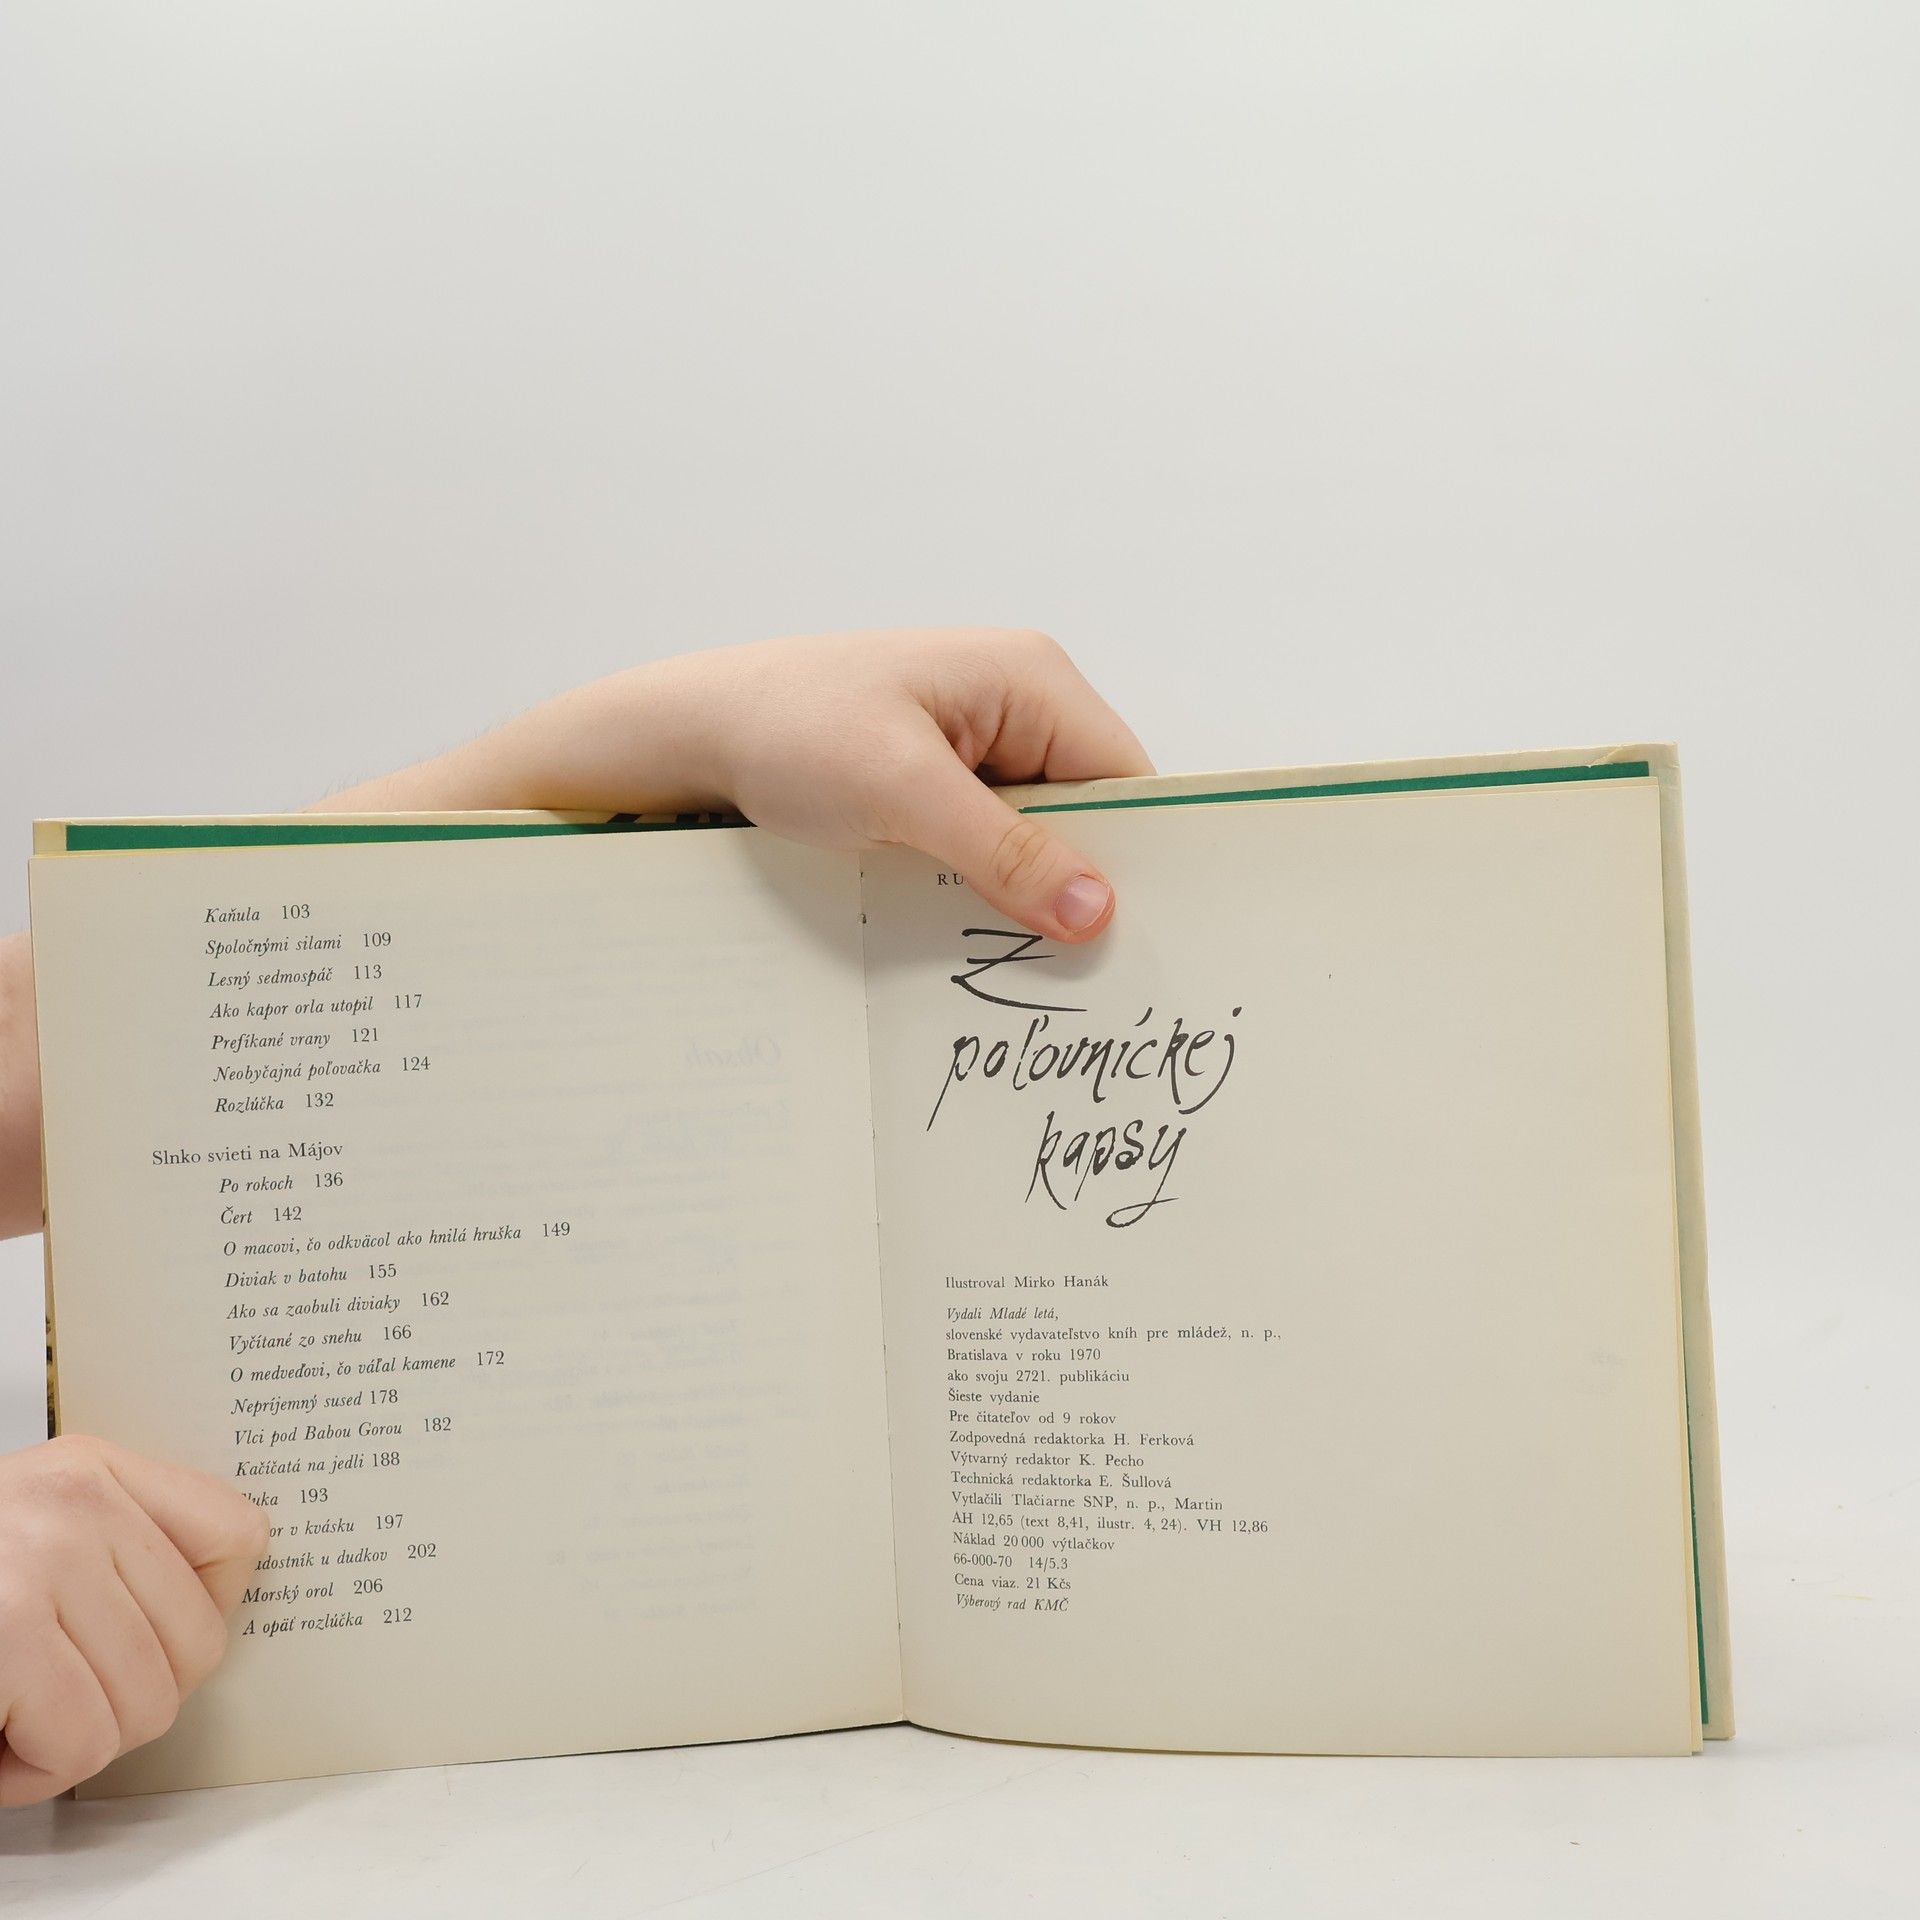 Kaňula 103
Spoločnými silami 109
Lesný sedmospáč 113
Ako kapor orla utopil 117
Prefíkané vrany 121
Neobyčajná poľovačka 124
Rozlúčka 132
Slnko svieti na Májov
Po rokoch 136
Čert 142
O macovi, čo odkväcol ako hnilá hruška 149
Diviak v batohu 155
Ako sa zaobuli diviaky 162
Vyčítané zo snehu 166
O medveďovi, čo váľal kamene 172
Nepríjemný sused 178
Vlci pod Babou Gorou 182
Kačíčatá na jedli 188
193
v kvásku 197
u dudkov 202
Morský orol 206
A opäť rozlúčka 212
Z
poľovníckej
kapsy
Ilustroval Mirko Hanák
Vydali Mladé letá,
slovenské vydavateľstvo kníh pre mládež, n. p.,
Bratislava v roku 1970
ako svoju 2721. publikáciu
Šieste vydanie
Pre čitateľov od 9 rokov
Zodpovedná redaktorka H. Ferková
Výtvarný redaktor K. Pecho
Technická redaktorka E. Šullová
Vytlačili Tlačiarne SNP, n. p., Martin
AH 12,65 (text 8,41, ilustr. 4, 24). VH 12,86
Náklad 20 000 výtlačkov
66-000-70 14/5.3
Cena viaz. 21 Kčs
Výberový rad KMČ